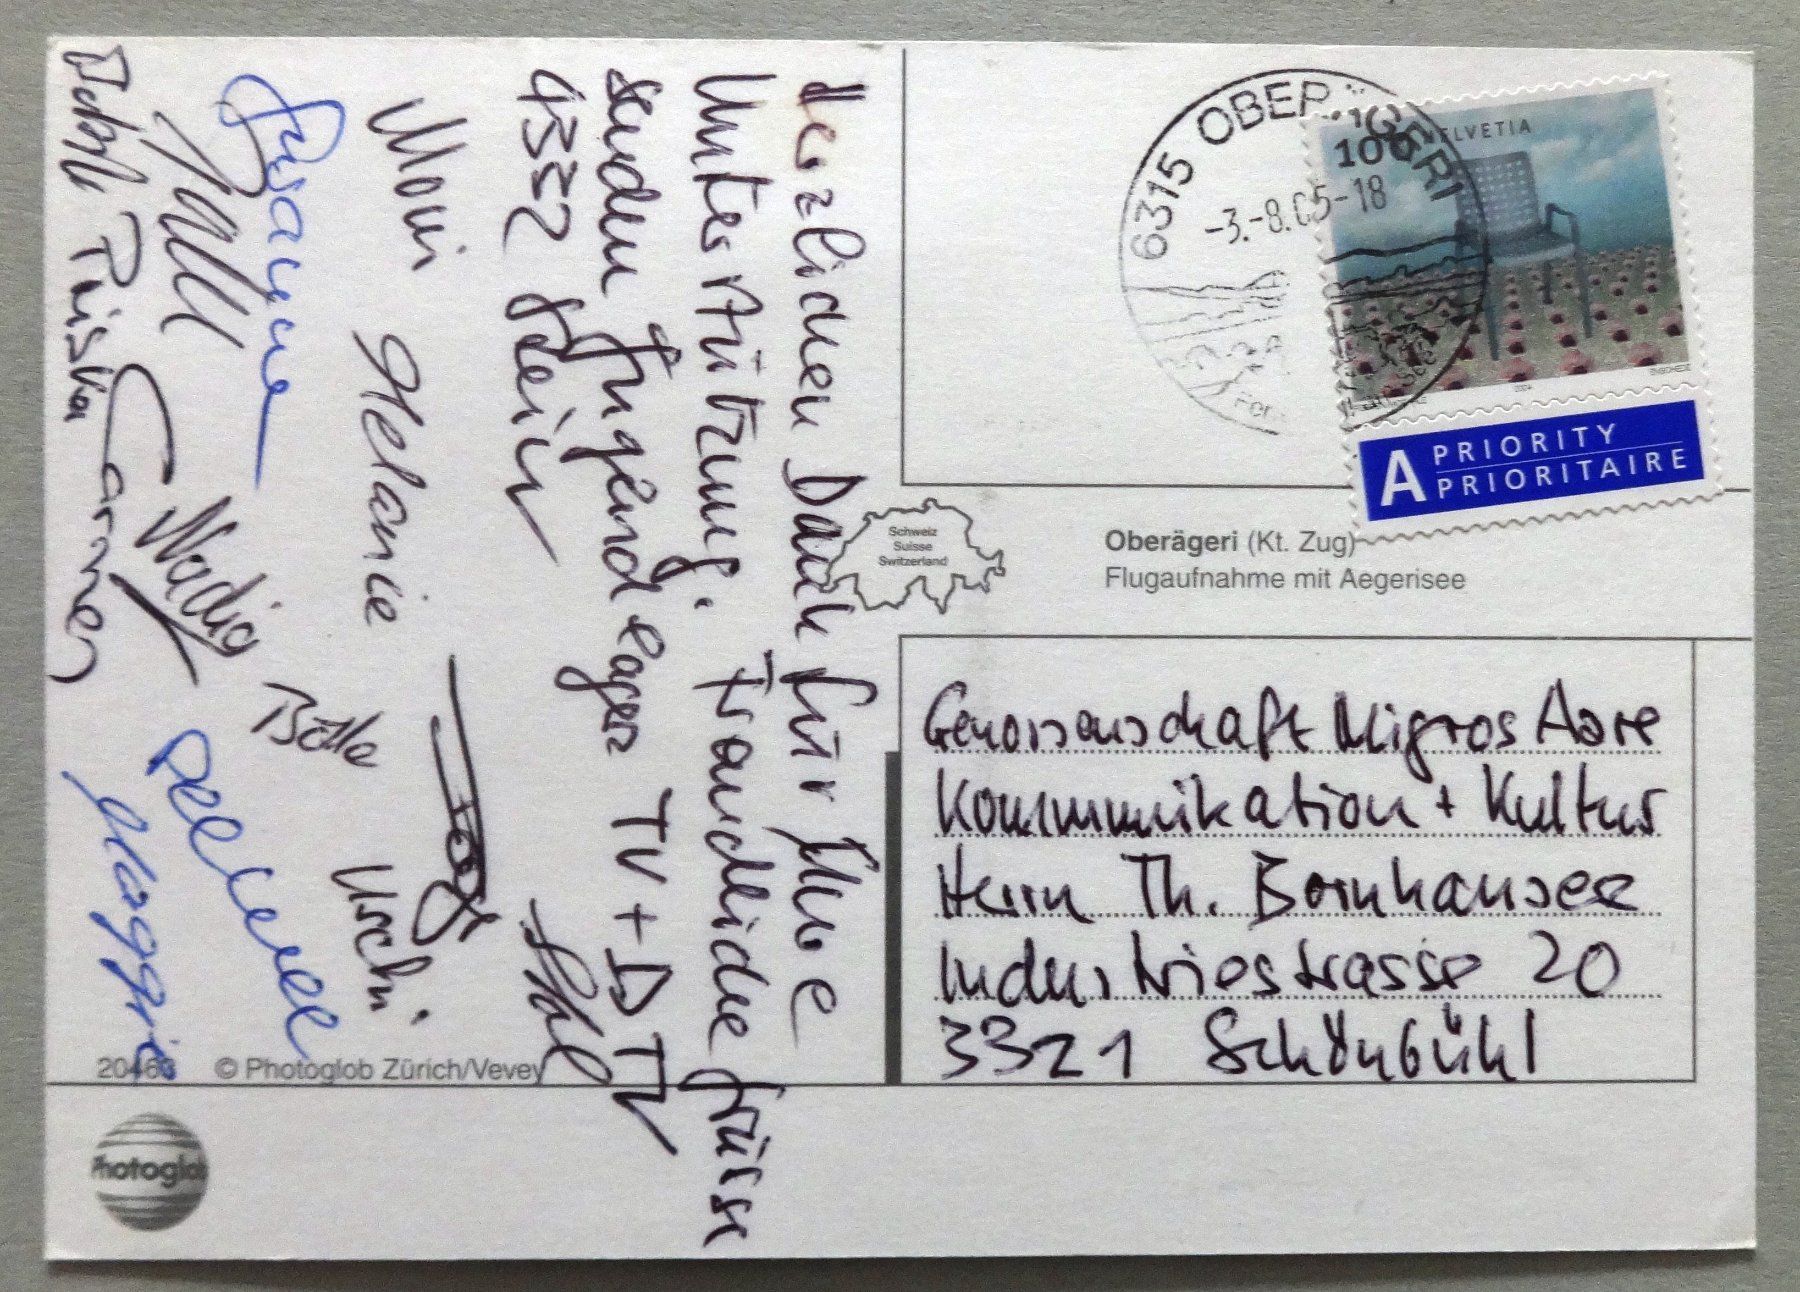 Herzlichen Dank für Ihre
Unterstützung. Freundliche Grüsse
senden Jugendlager TV + DTV
4332 Stein
Moni Melanie
Susanne
Nadia
Bölle
Uschi
Priska
Carmen
Maggie
6315 OBERÄGERI
-3.-8.05-18
HELVETIA
100
2004
ENSCHEDE
A PRIORITY
PRIORITAIRE
Schweiz
Suisse
Switzerland
Oberägeri (Kt. Zug)
Flugaufnahme mit Aegerisee
Genossenschaft Migros Aare
Kommunikation + Kultur
Herrn Th. Bornhauser
Industriestrasse 20
3321 Schönbühl
© Photoglob Zürich/Vevey
Photoglob